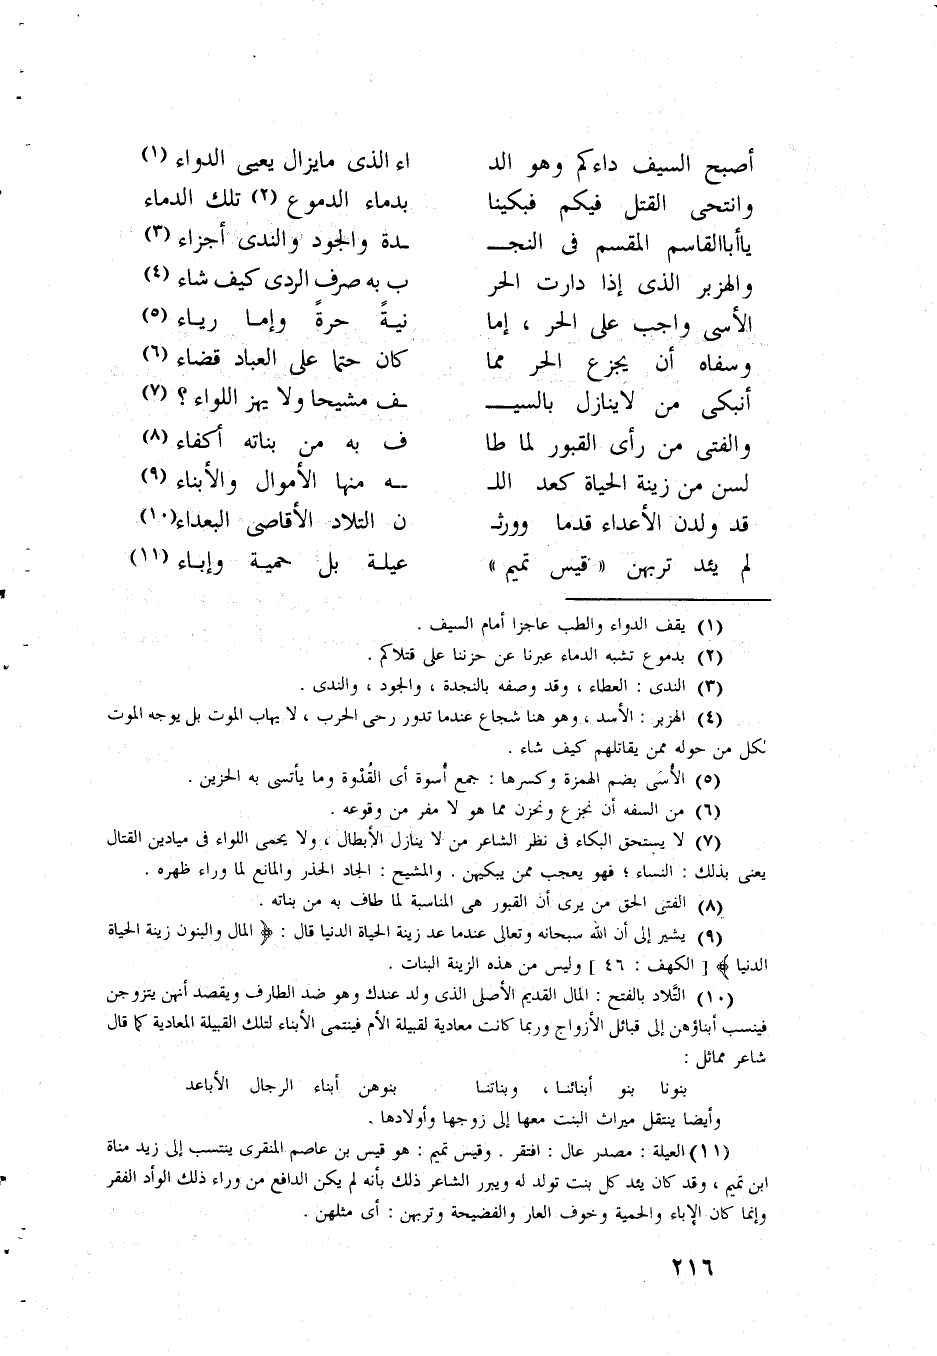 أصبح السيف داءكم وهو الد اء الذى مايزال يعيى الدواء (١)
وانتحى القتل فيكم فبكينا بدماء الدموع (٢) تلك الدماء
ياأباالقاسم المقسم فى النجـ ـدة والجود والندى أجزاء (٣)
والهزبر الذى إذا دارت الحر ب به صرف الردى كيف شاء (٤)
الأسى واجب على الحر ، إما نيـةً حرةً وإمـا ريـاء (٥)
وسفاه أن يجزع الحر مما كان حتما على العباد قضاء (٦)
أنبكى من لاينازل بالسيـ ـف مشيحا ولا يهز اللواء ؟ (٧)
والفتى من رأى القبور لما طا ف به من بناته أكفاء (٨)
لسن من زينة الحياة كعد اللـ ـه منها الأموال والأبناء (٩)
قد ولدن الأعداء قدما وورثـ ن التلاد الأقاصى البعداء(١٠)
لم يئد تربهن « قيس تميم » عيلـة بل حميـة وإبـاء (١١)
(١) يقف الدواء والطب عاجزا أمام السيف .
(٢) بدموع تشبه الدماء عبرنا عن حزننا على قتلاكم .
(٣) الندى : العطاء ، وقد وصفه بالنجدة ، والجود ، والندى .
(٤) الهزبر : الأسد ، وهو هنا شجاع عندما تدور رحى الحرب ، لا يهاب الموت بل يوجه الموت
لكل من حوله ممن يقاتلهم كيف شاء .
(٥) الأُسَى بضم الهمزة وكسرها : جمع أسوة أى القُدْوة وما يأتسى به الحزين .
(٦) من السفه أن نجزع ونحزن مما هو لا مفر من وقوعه .
(٧) لا يستحق البكاء فى نظر الشاعر من لا ينازل الأبطال ، ولا يحمى اللواء فى ميادين القتال
يعنى بذلك : النساء ؛ فهو يعجب ممن يبكيهن . والمشيح : الجاد الحذر والمانع لما وراء ظهره .
(٨) الفتى الحق من يرى أن القبور هى المناسبة لما طاف به من بناته .
(٩) يشير إلى أن الله سبحانه وتعالى عندما عد زينة الحياة الدنيا قال : ﴿ المال والبنون زينة الحياة
الدنيا ﴾ [ الكهف : ٤٦ ] وليس من هذه الزينة البنات .
(١٠) التَّلاد بالفتح : المال القديم الأصلى الذى ولد عندك وهو ضد الطارف ويقصد أنهن يتزوجن
فينسب أبناؤهن إلى قبائل الأزواج وربما كانت معادية لقبيلة الأم فينتمى الأبناء لتلك القبيلة المعادية كما قال
شاعر مماثل :
بنونا بنو أبنائنـا ، وبناتنـا بنوهن أبناء الرجال الأباعد
وأيضا ينتقل ميراث البنت معها إلى زوجها وأولادها .
(١١) العيلة : مصدر عال : افتقر . وقيس تميم : هو قيس بن عاصم المنقرى ينتسب إلى زيد مناة
ابن تميم ، وقد كان يئد كل بنت تولد له ويبرر الشاعر ذلك بأنه لم يكن الدافع من وراء ذلك الوأد الفقر
وإنما كان الإباء والحمية وخوف العار والفضيحة وتربهن : أى مثلهن .
٢١٦